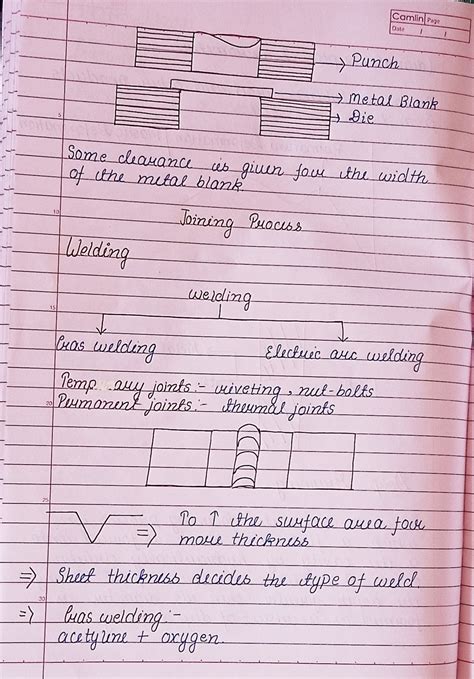 Camlin Page
Date / /
Punch
Metal Blank
Die
Some clearance is given for the width
of the metal blank.
Joining Process
Welding
Welding
Gas welding
Electric arc welding
Temp ary joints:- riveting, nut-bolts
Permanent joints:- thermal joints
⇒ To ↑ the surface area for
more thickness
⇒ Sheet thickness decides the type of weld
⇒ Gas welding:-
acetylene + oxygen.
5
10
15
20
25
30